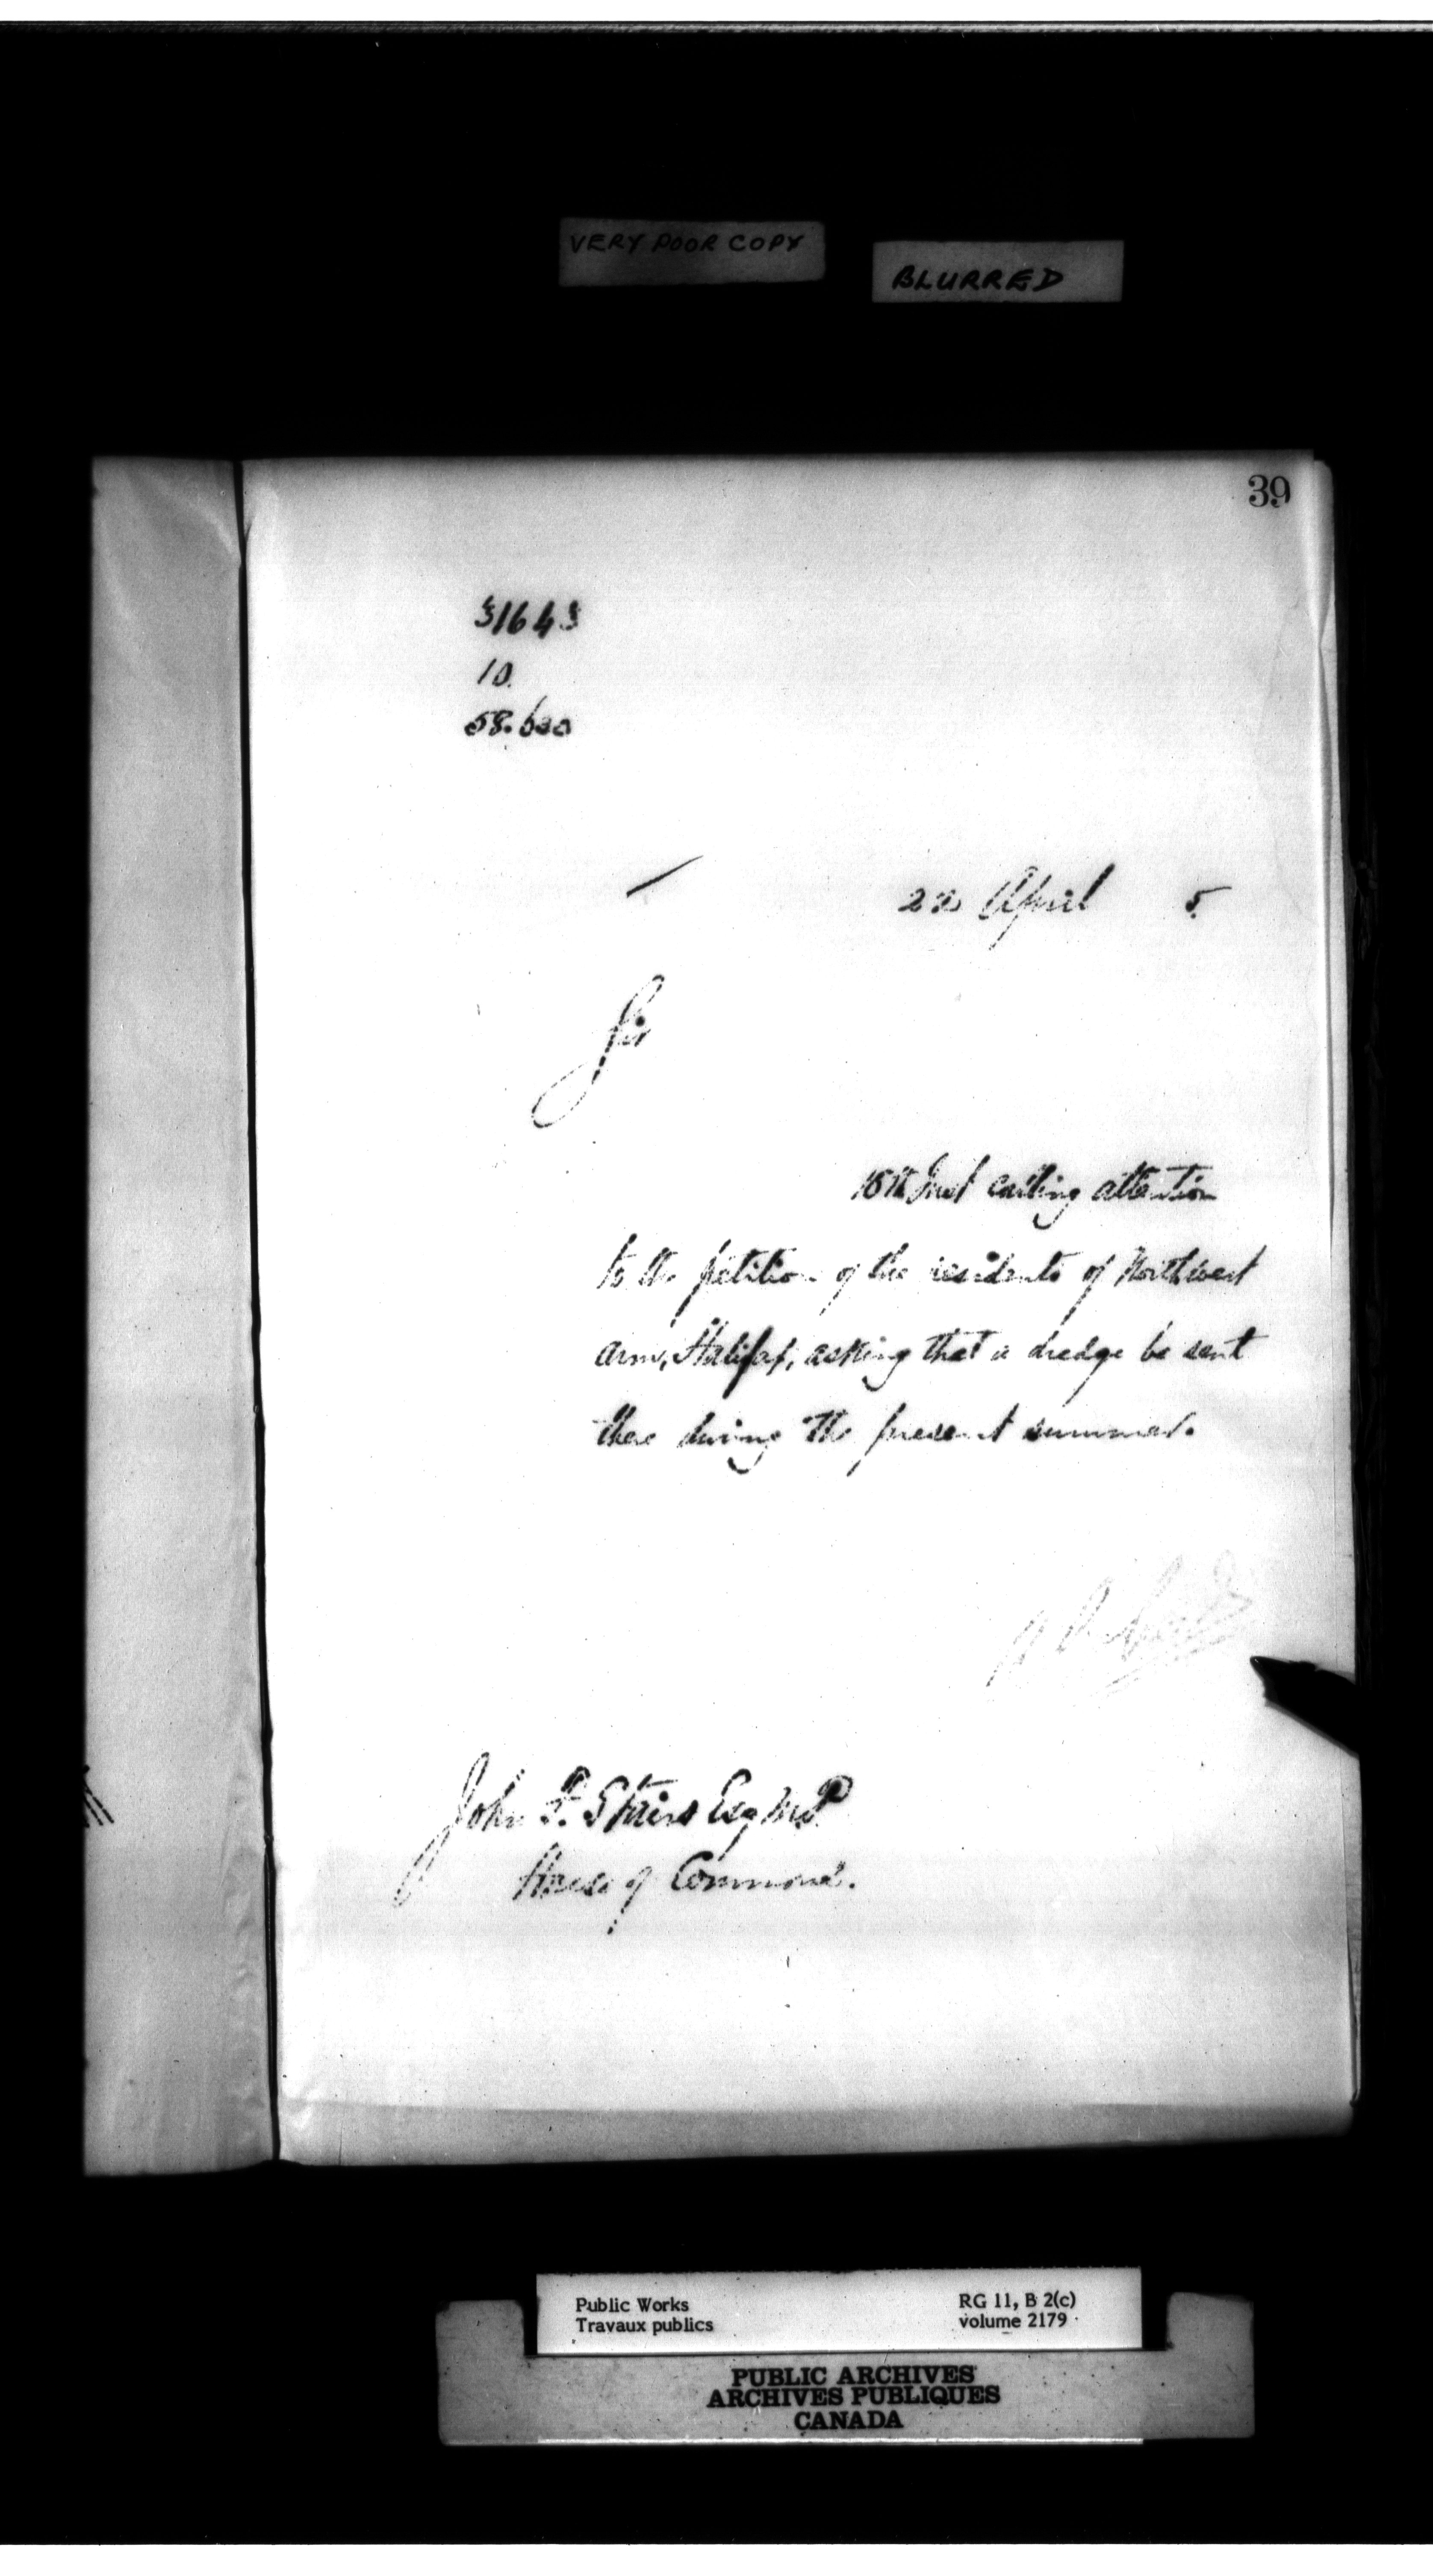 VERY POOR COPY
BLURRED
39
10.
22 April 5.
Sir
15th Inst calling attention
to the petition of the residents of Northwest
Arm, Halifax, asking that a dredge be sent
there during the present summer.
John F. Stairs Esq M.P.
House of Commons.
Public Works
Travaux publics
RG 11, B 2(c)
volume 2179
PUBLIC ARCHIVES
ARCHIVES PUBLIQUES
CANADA